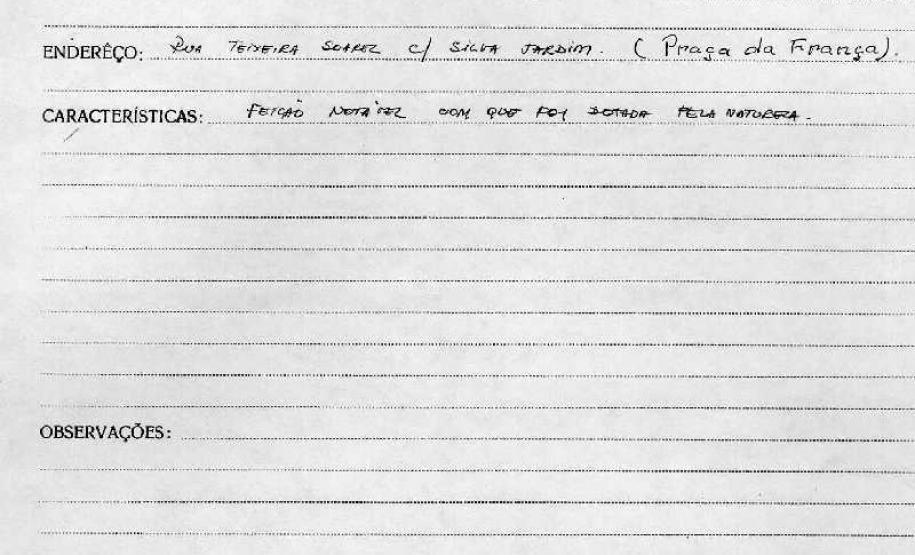 ENDERÊÇO: RUA TEIXEIRA SOAREZ c/ SILVA JARDIM. (Praça da França).
CARACTERÍSTICAS: FEIÇÃO NOTÁVEL COM QUE FOI DOTADA PELA NATUREZA.
OBSERVAÇÕES: